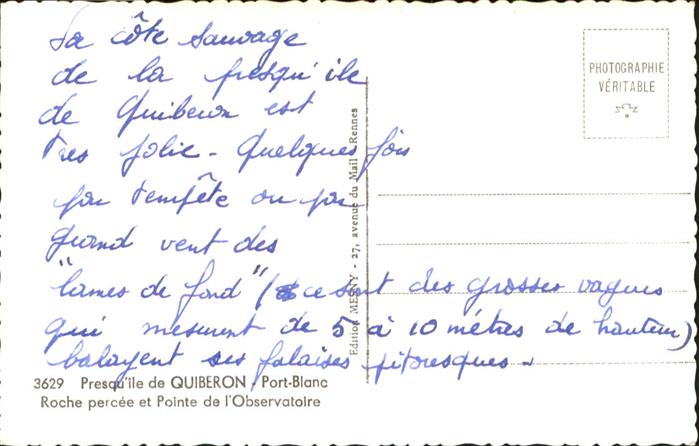 La côte sauvage
de la presqu'ile
de Quiberon est
tres jolie - Quelques fois
par tempête ou par
grand vent des
"lames de fond" (ce sont des grosses vagues
qui mesurent de 5 à 10 mètres de hauteur)
balayent ses falaises pitoresques -
PHOTOGRAPHIE
VÉRITABLE
Edition MESNY - 27, avenue du Mail - Rennes
3629 Presqu'ile de QUIBERON - Port-Blanc
Roche percée et Pointe de l'Observatoire